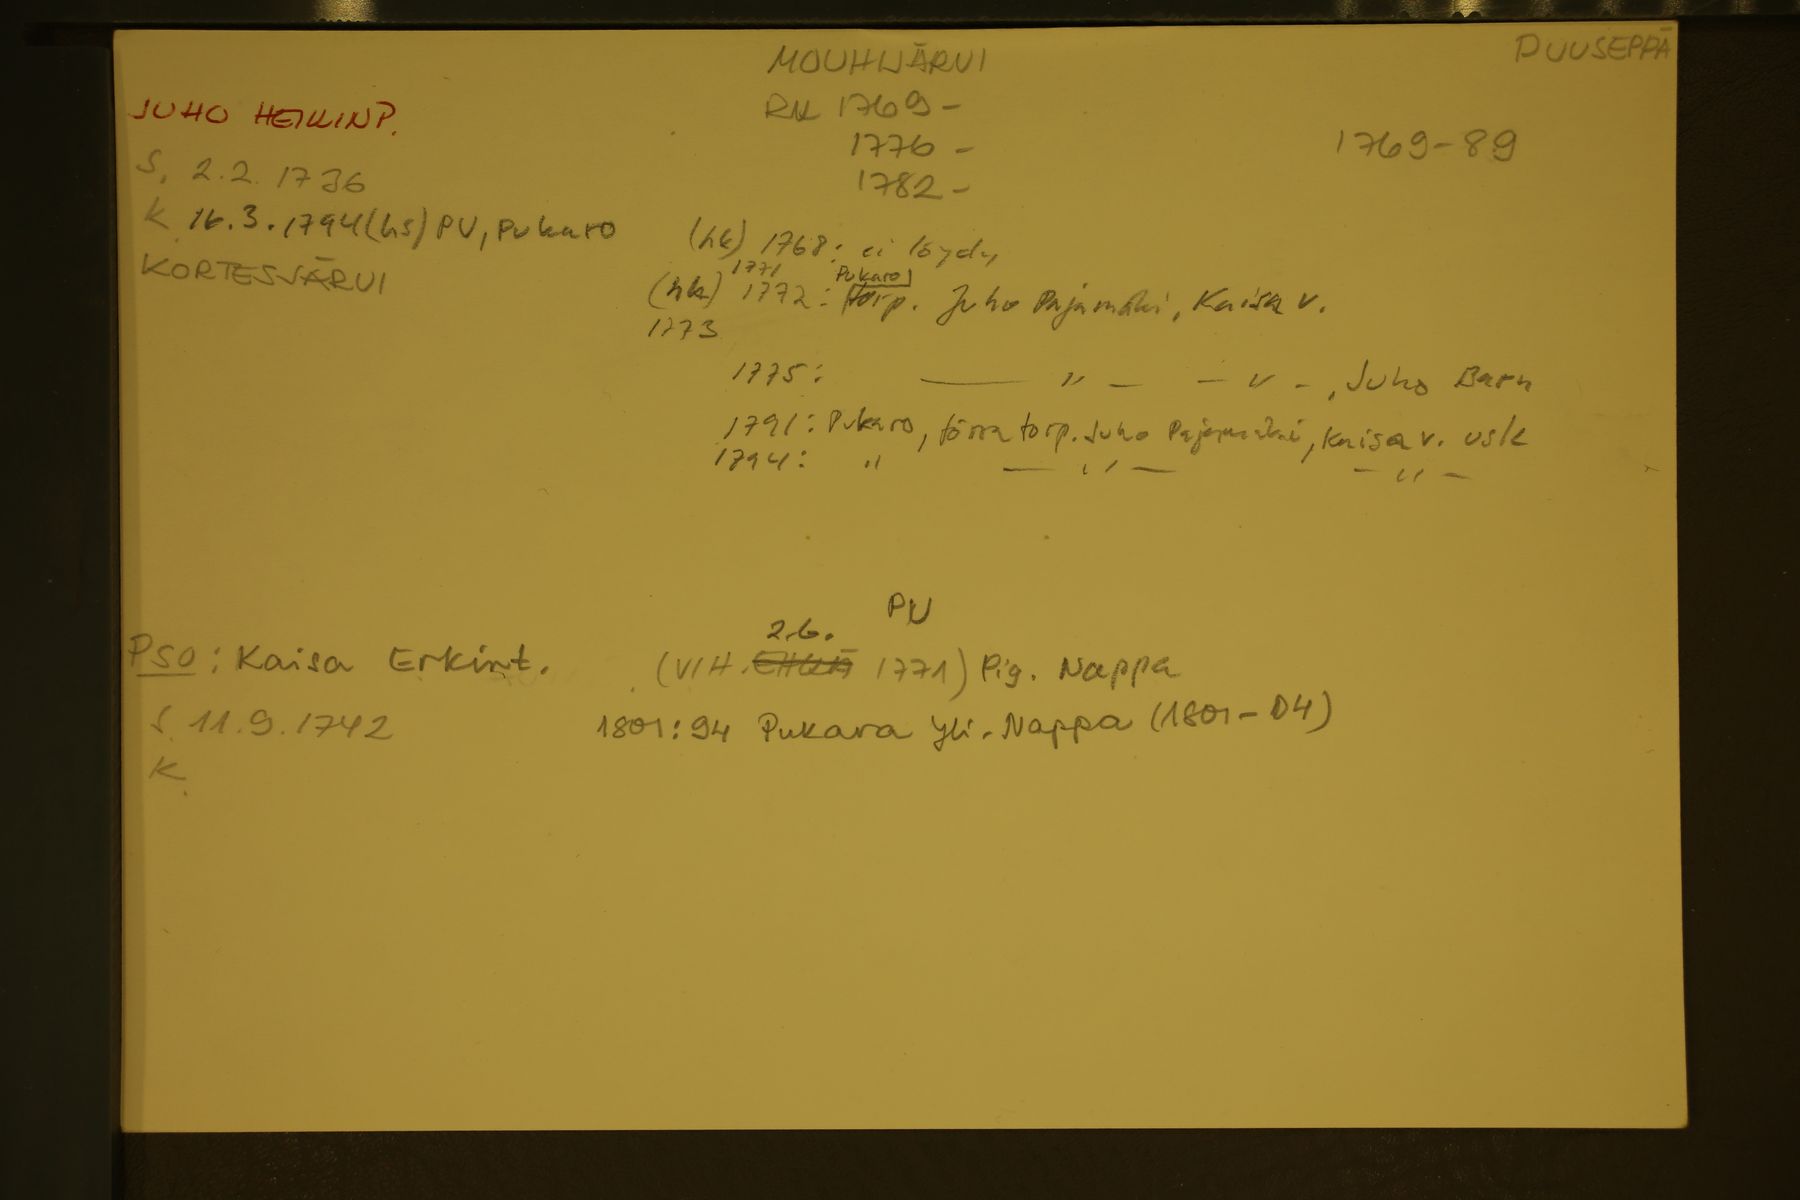 MOUHIJÄRVI
PUUSEPPÄ
JUHO HEIKINP.
RK 1769-
1776 -
1782 -
1769-89
S. 2.2. 1736
K. 16.3.1794 (hs) PV, Pukaro
KORTESJÄRVI
(hk) 1768: ei löydy
1771 Pukaro
(hk) 1772: torp. Juho Pajamäki, Kaisa v.
1773
1775: — " — - v -, Juho Barn
1791: Pukaro, torp. Juho Pajamäki, Kaisa v. usk
1794: " — " — - " -
PU
2.6.
PSO: Kaisa Erkint. (VIH. 1771) Pig. Nappa
S. 11.9.1742 1801: 94 Pukara Yli-Nappa (1801-04)
K.